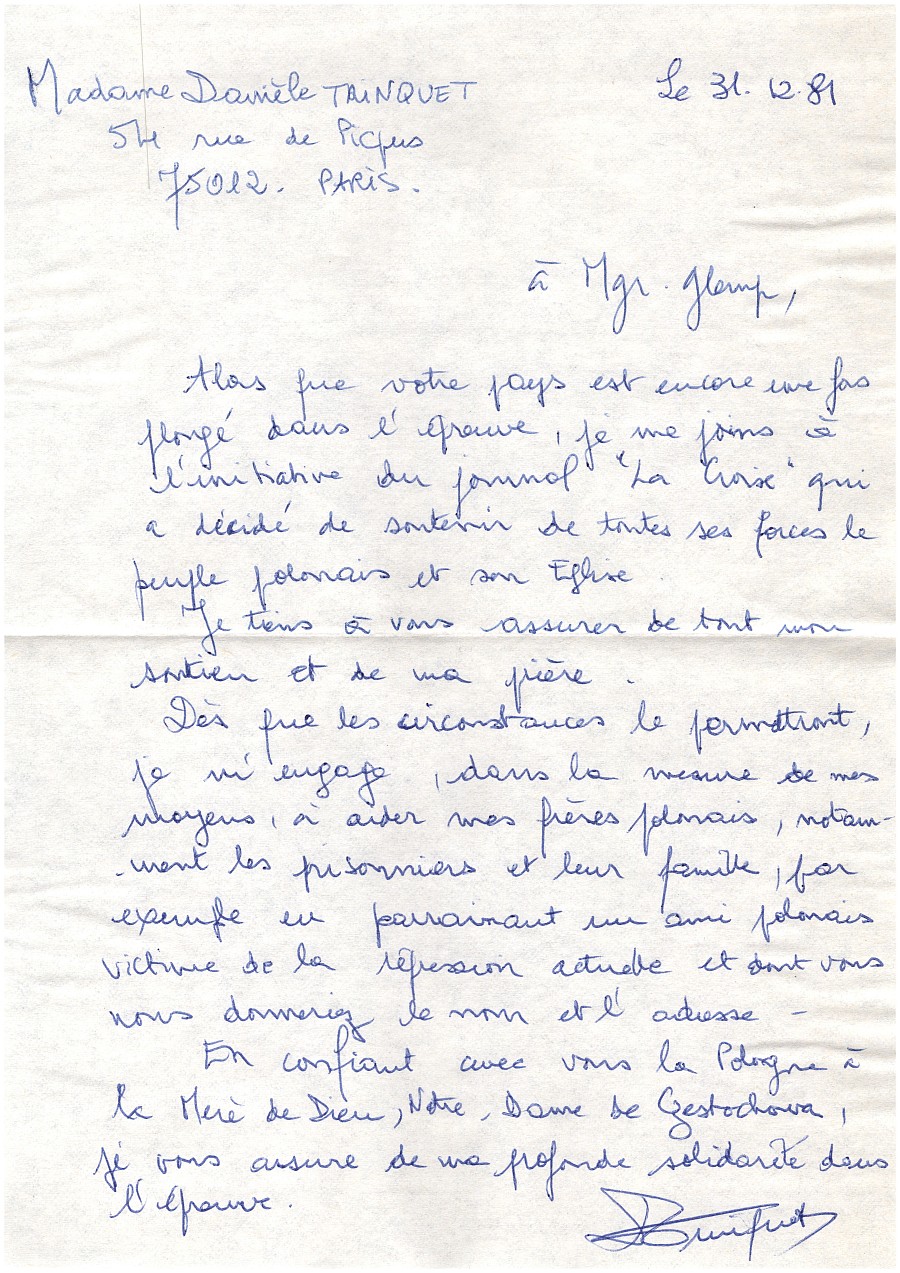 Madame Danièle TAINQUET
Le 31.12.81
54 rue de Picpus
75012. PARIS.
à Mgr. Glemp,
Alors que votre pays est encore une fois
plongé dans l'épreuve, je me joins à
l'initiative du journal "La Croix" qui
a décidé de soutenir de toutes ses forces le
peuple polonais et son Eglise.
Je tiens à vous assurer de tout mon
soutien et de ma prière.
Dès que les circonstances le permettront,
je m'engage, dans la mesure de mes
moyens, à aider mes frères polonais, notam-
ment les prisonniers et leur famille, par
exemple en parrainant un ami polonais
victime de la répression actuelle et dont vous
nous donneriez le nom et l'adresse -
En confiant avec vous la Pologne à
la Mère de Dieu, Notre Dame de Czestochowa,
je vous assure de ma profonde solidarité dans
l'épreuve.